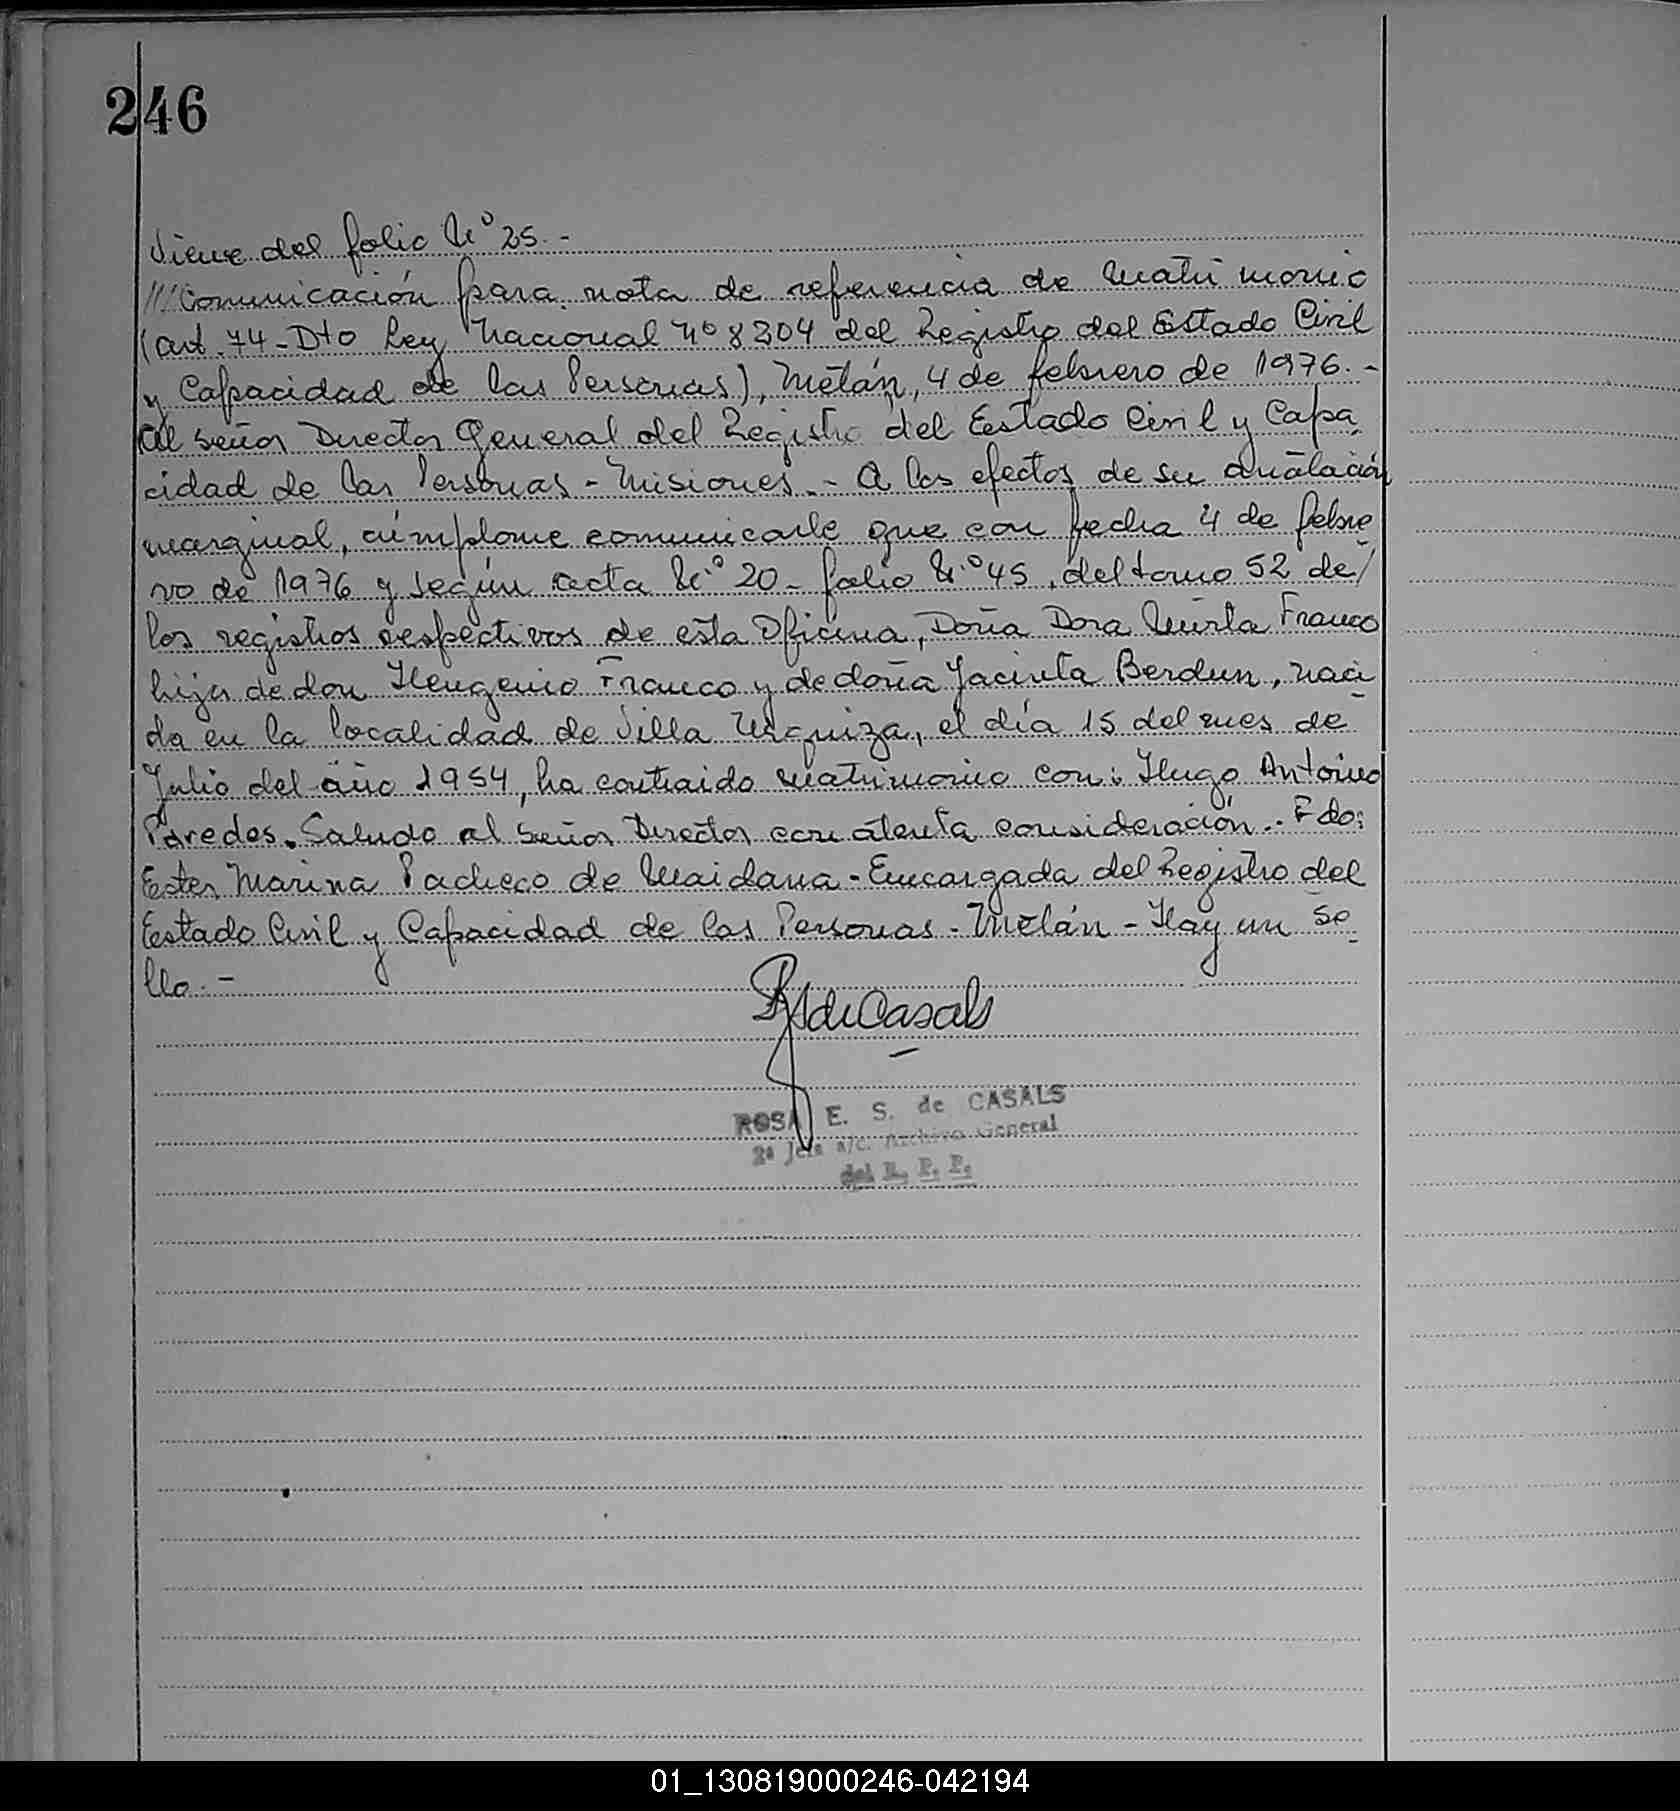 246
Viene del folio Nº 25.-
///Comunicación para nota de referencia de Matrimonio
(art. 74 - Dto Ley Nacional Nº 8204 del Registro del Estado Civil
y Capacidad de las Personas), Metán, 4 de febrero de 1976.-
Al Señor Director General del Registro del Estado Civil y Capa
cidad de las Personas - Misiones.- A los efectos de su anotación
marginal, cúmplome comunicarle que con fecha 4 de febre
ro de 1976 y según acta Nº 20 - folio Nº 45, del tomo 52 de/
los registros respectivos de esta Oficina, Doña Dora Mirta Franco
hija de don Heugenio Franco y de doña Jacinta Berdun, naci
da en la localidad de Villa Urquiza, el día 15 del mes de
Julio del año 1954, ha contraido matrimonio con: Hugo Antonio
Paredes. Saludo al Señor Director con atenta consideración.. Fdo:
Ester Marina Pacheco de Maidana - Encargada del Registro del
Estado Civil y Capacidad de las Personas - Metán - Hay un Se
llo.-
ROSA E. S. de CASALS
2ª Jefa a/c. Archivo General
del R. P. P.
01_130819000246-042194